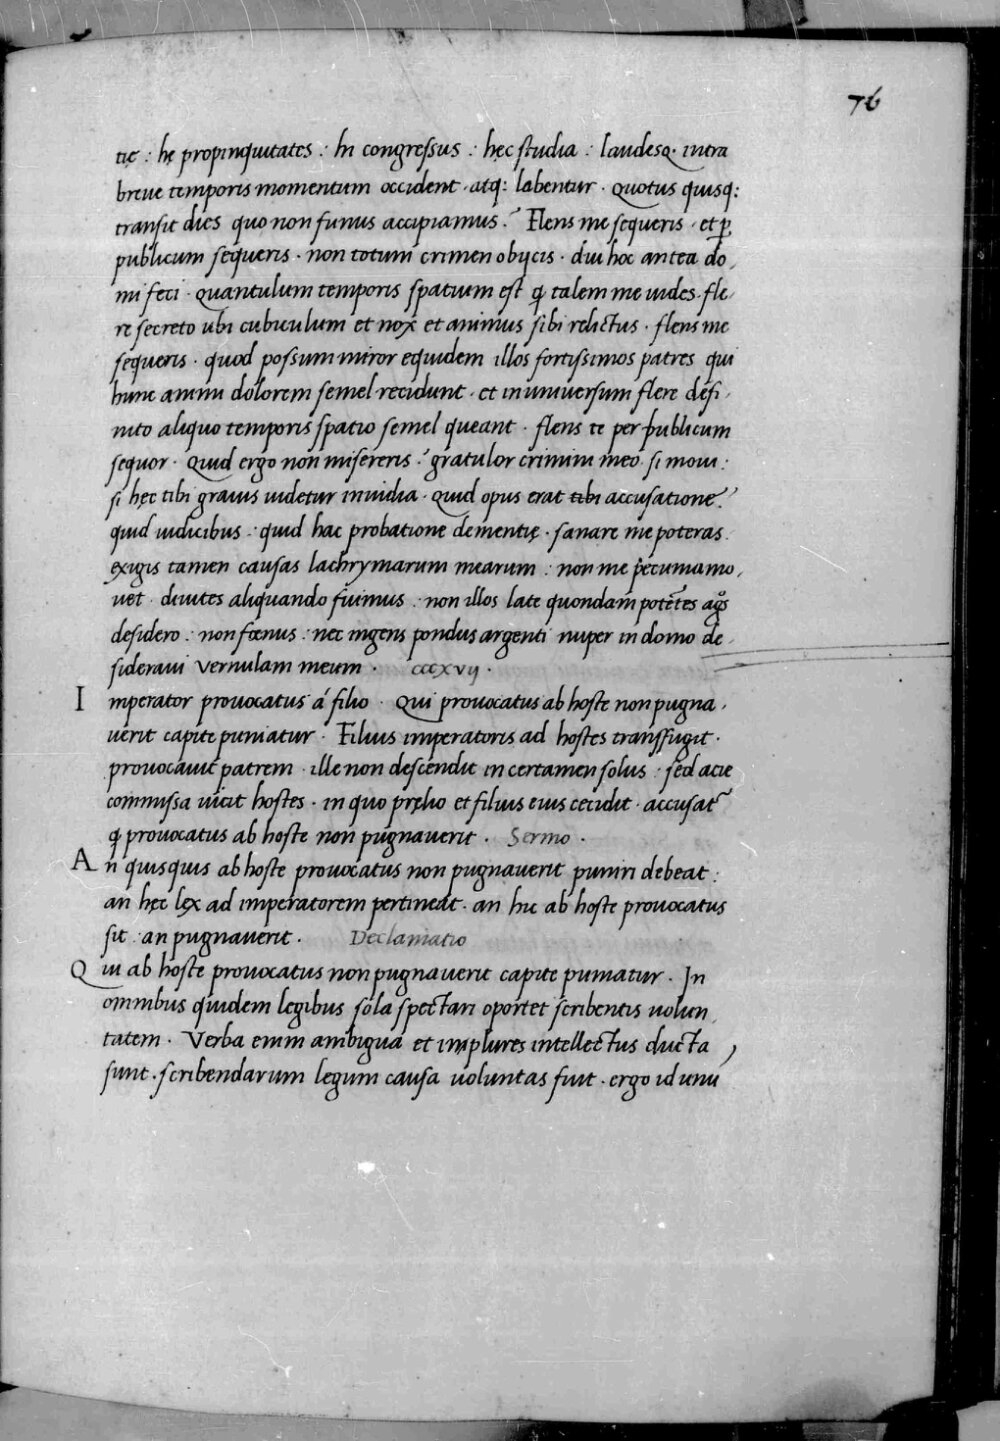 76
tię : hę propinquitates : hi congressus : hęc studia : laudesq. intra
breue temporis momentum occident . atq: labentur . Quotus quisq:
transit dies quo non funus accipiamus ? Flens me sequeris . et p
publicum sequeris . non totum crimen obijcis . diu hoc antea do,
mi feci . Quantulum temporis spatium est q talem me uides . fle,
re secreto ubi cubiculum et nox et animus sibi relictus . flens me
sequeris . quod possum miror equidem illos fortissimos patres qui
hunc animi dolorem semel recidunt . et in uniuersum flere defi,
nito aliquo temporis spatio semel queant . flens te per publicum
sequor . Quid ergo non misereris ? gratulor crimini meo si moui :
si hęc tibi grauis uidetur inuidia . Quid opus erat tibi accusatione ?
quid iudicibus : quid hac probatione dementię . sanare me poteras .
exigis tamen causas lachrymarum mearum : non me pecunia mo,
uet . diuites aliquando fuimus : non illos late quondam potētes agͦs
desidero : non fœnus : nec ingens pondus argenti nuper in domo de,
sideraui vernulam meum . cccxvij .
Imperator prouocatus á filio . Qui prouocatus ab hoste non pugna,
uerit capite puniatur . Filius imperatoris ad hostes transfugit .
prouocauit patrem . ille non descendit in certamen solus : sed acie
commissa uicit hostes . in quo pręlio et filius eius cecidit . accusat
q prouocatus ab hoste non pugnauerit . Sermo .
An quisquis ab hoste prouocatus non pugnauerit puniri debeat :
an hęc lex ad imperatorem pertineat . an hic ab hoste prouocatus
sit : an pugnauerit . Declamatio
Qui ab hoste prouocatus non pugnauerit capite puniatur . In
omnibus quidem legibus sola spectari oportet scribentis uolun,
tatem . Verba enim ambigua et in plures intellectus ducta
sunt . scribendarum legum causa uoluntas fuit . ergo id unū